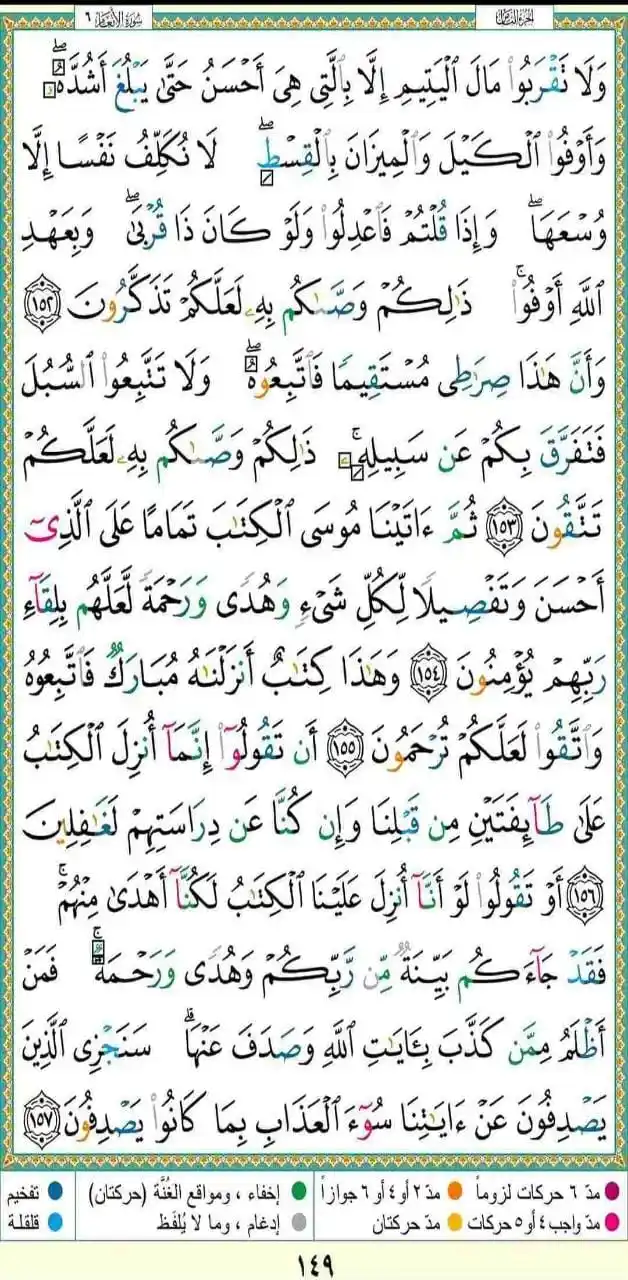 الجزء الثامن
سورة الأنعام ٦
وَلَا تَقْرَبُوا۟ مَالَ ٱلْيَتِيمِ إِلَّا بِٱلَّتِى هِىَ أَحْسَنُ حَتَّىٰ يَبْلُغَ أَشُدَّهُۥۖ
وَأَوْفُوا۟ ٱلْكَيْلَ وَٱلْمِيزَانَ بِٱلْقِسْطِۖ لَا نُكَلِّفُ نَفْسًا إِلَّا
وُسْعَهَاۖ وَإِذَا قُلْتُمْ فَٱعْدِلُوا۟ وَلَوْ كَانَ ذَا قُرْبَىٰۖ وَبِعَهْدِ
ٱللَّهِ أَوْفُوا۟ۚ ذَٰلِكُمْ وَصَّىٰكُم بِهِۦ لَعَلَّكُمْ تَذَكَّرُونَ ١٥٢
وَأَنَّ هَٰذَا صِرَٰطِى مُسْتَقِيمًا فَٱتَّبِعُوهُۖ وَلَا تَتَّبِعُوا۟ ٱلسُّبُلَ
فَتَفَرَّقَ بِكُمْ عَن سَبِيلِهِۦۚ ذَٰلِكُمْ وَصَّىٰكُم بِهِۦ لَعَلَّكُمْ
تَتَّقُونَ ١٥٣ ثُمَّ ءَاتَيْنَا مُوسَى ٱلْكِتَٰبَ تَمَامًا عَلَى ٱلَّذِىٓ
أَحْسَنَ وَتَفْصِيلًا لِّكُلِّ شَىْءٍ وَهُدًى وَرَحْمَةً لَّعَلَّهُم بِلِقَآءِ
رَبِّهِمْ يُؤْمِنُونَ ١٥٤ وَهَٰذَا كِتَٰبٌ أَنزَلْنَٰهُ مُبَارَكٌ فَٱتَّبِعُوهُ
وَٱتَّقُوا۟ لَعَلَّكُمْ تُرْحَمُونَ ١٥٥ أَن تَقُولُوٓا۟ إِنَّمَآ أُنزِلَ ٱلْكِتَٰبُ
عَلَىٰ طَآئِفَتَيْنِ مِن قَبْلِنَا وَإِن كُنَّا عَن دِرَاسَتِهِمْ لَغَٰفِلِينَ
١٥٦ أَوْ تَقُولُوا۟ لَوْ أَنَّآ أُنزِلَ عَلَيْنَا ٱلْكِتَٰبُ لَكُنَّآ أَهْدَىٰ مِنْهُمْۚ
فَقَدْ جَآءَكُم بَيِّنَةٌ مِّن رَّبِّكُمْ وَهُدًى وَرَحْمَةٌۚ فَمَنْ
أَظْلَمُ مِمَّن كَذَّبَ بِـَٔايَٰتِ ٱللَّهِ وَصَدَفَ عَنْهَاۗ سَنَجْزِى ٱلَّذِينَ
يَصْدِفُونَ عَنْ ءَايَٰتِنَا سُوٓءَ ٱلْعَذَابِ بِمَا كَانُوا۟ يَصْدِفُونَ ١٥٧
مدّ ٦ حركات لزوماً مدّ ٢ أو ٤ أو ٦ جوازاً إخفاء ، ومواقع الغُنَّة (حركتان) تفخيم
مدّ واجب ٤ أو ٥ حركات مدّ حركتان إدغام ، وما لا يُلفَظ قلقلة
١٤٩